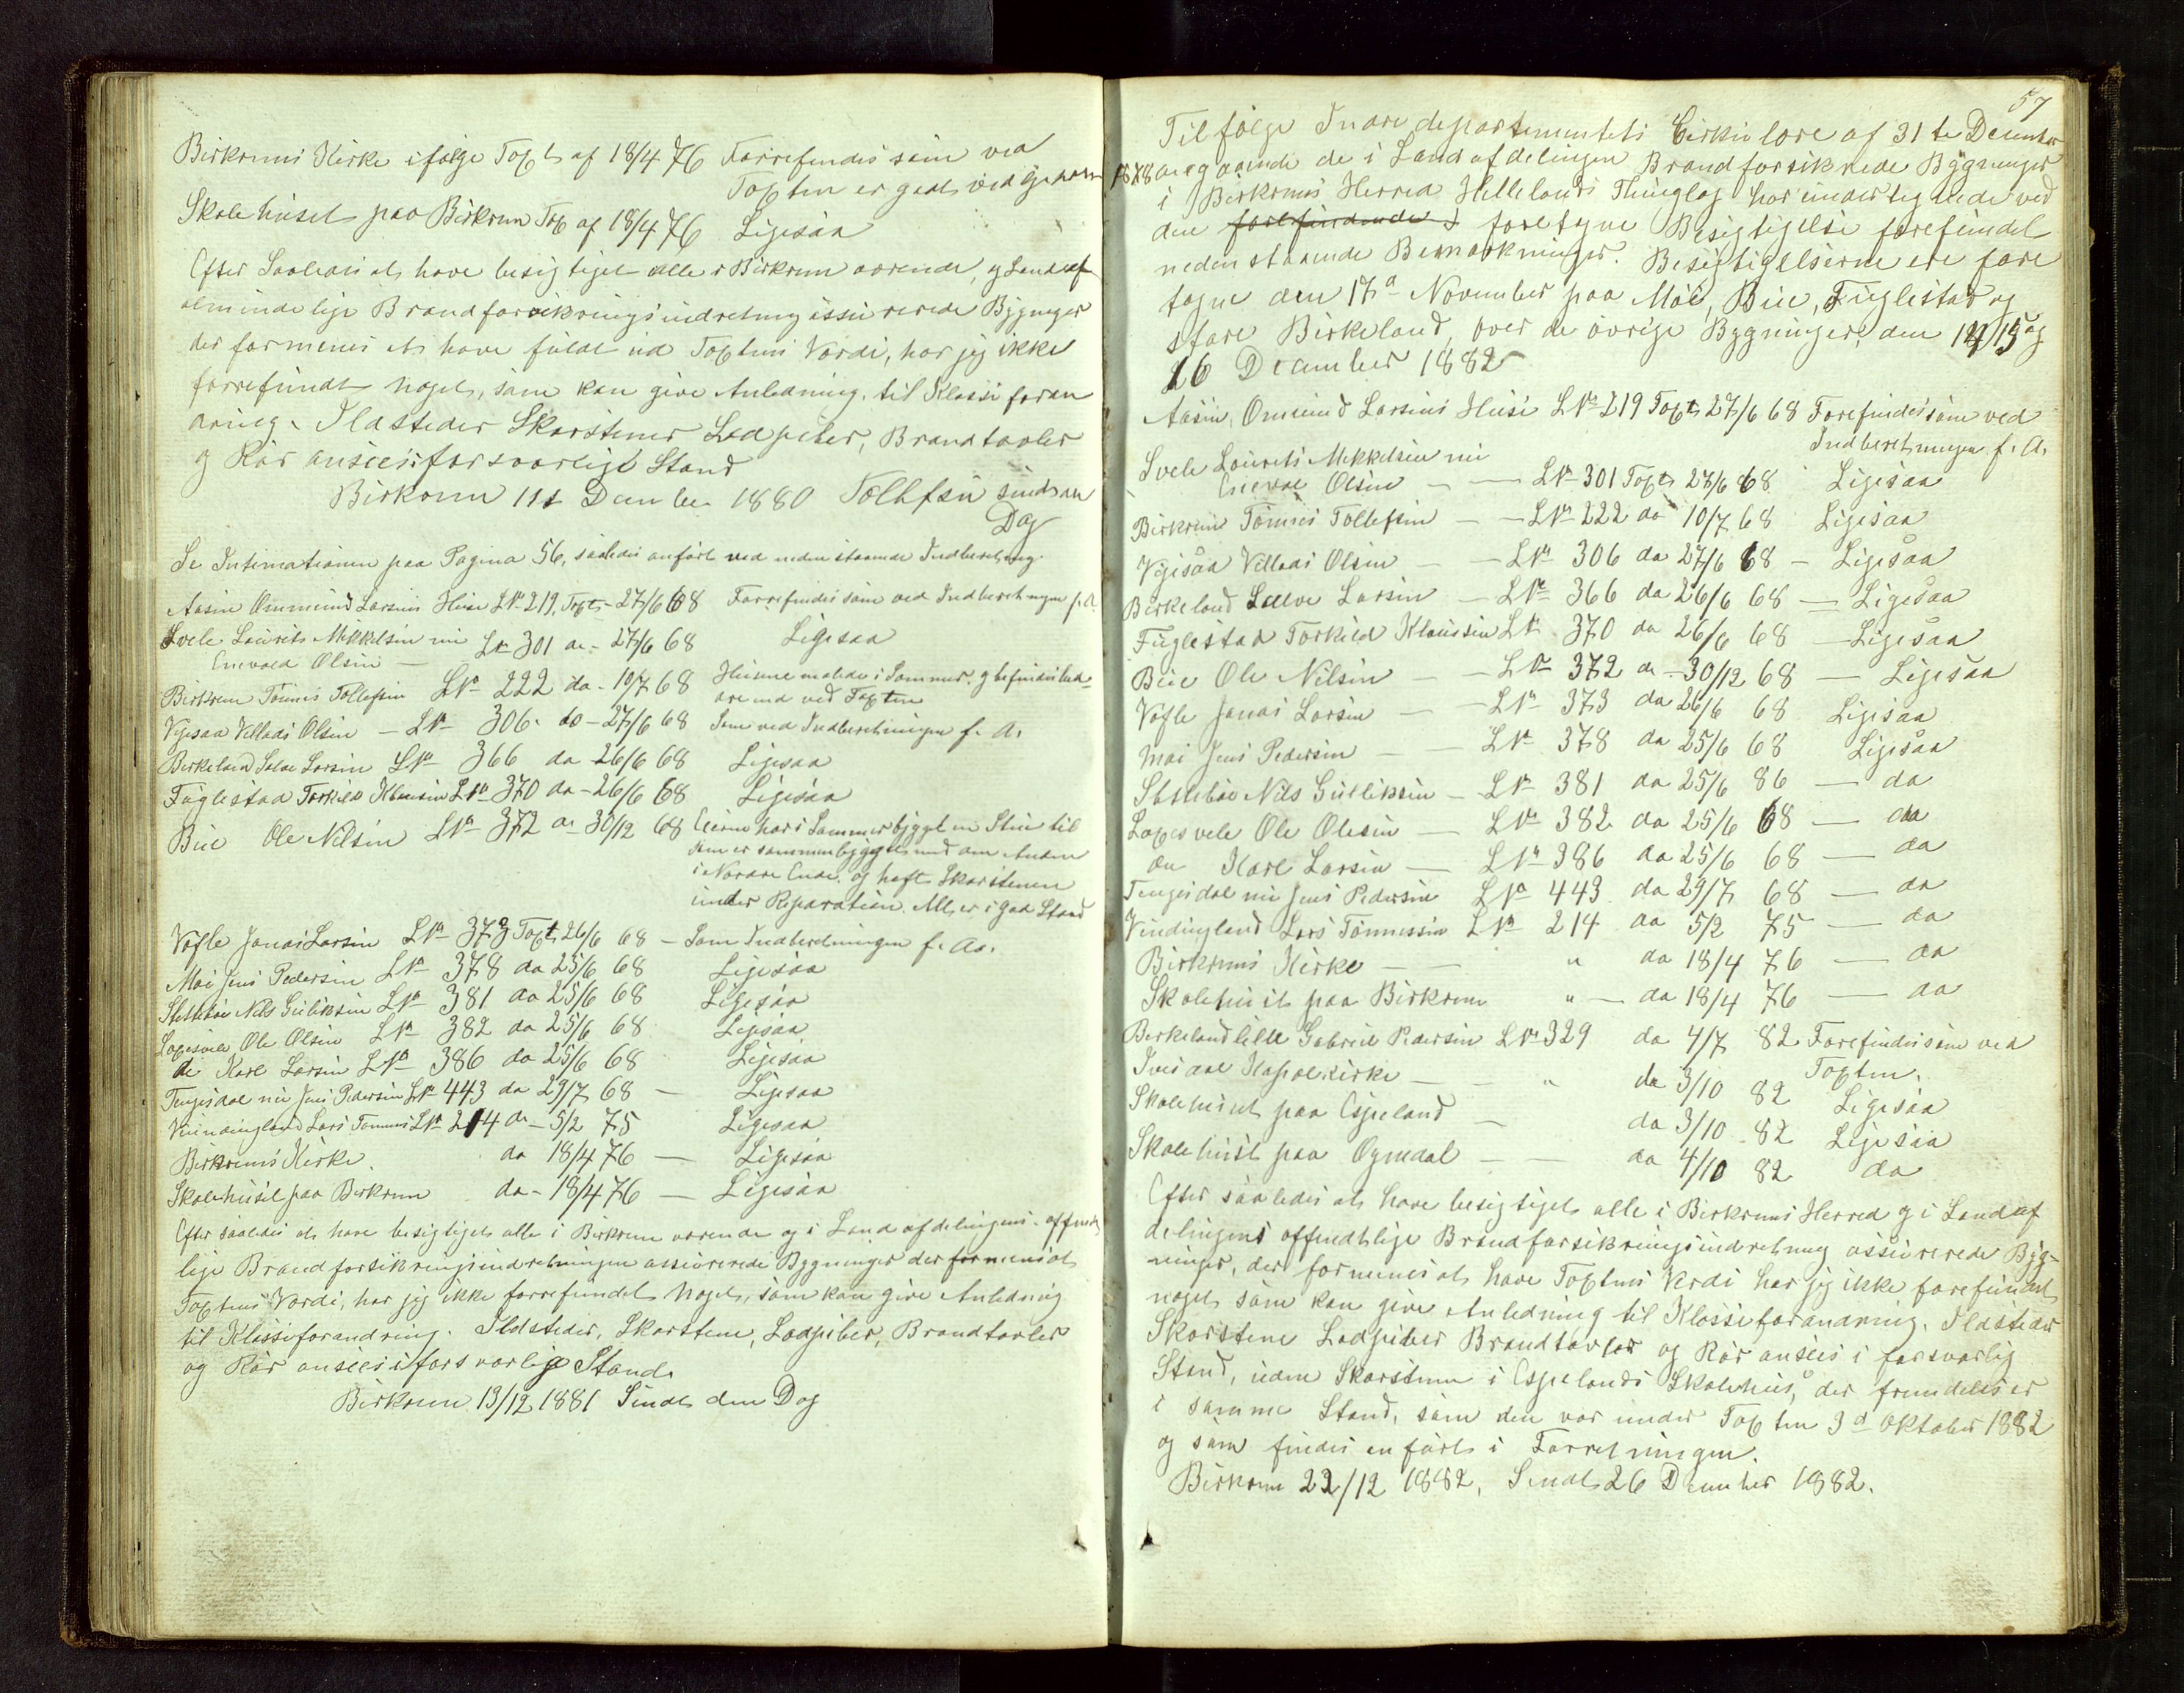 Birkrems Kirke ifølge Taxt af 18/4 76 Forrefindes som ved
Taxten er godt vedligeholdt
Skolehuset paa Birkrem Tax af 18/4 76 Ligesaa
Efter Saaledes at have besigtiget alle i Birkrem værende, og Landets
almindelige Brandforsikringsindretning assurerede Bygninger
der formenes at have fuldt ud Taxtens Værdi, har jeg ikke
forrefundet noget, som kan give Anledning til Klasseforan
dring. Ildsteder Skorstener Lodpiber, Brandtavler
og Rør ansees i forsvarligt Stand
Birkrem 11t December 1880 Tollefsen sendt den
Dag
Se Intimationen paa Pagina 56, saaledes anført ved nedenstaaende Indberetning.
Aasen Ommund Larsens Huse LNo 219. Taxt - 27/6 68 Forrefindes som ved Indberetningen f. A.
Svele Laurits Mikkelsen nu LNo 301 do - 27/6 68 Ligesaa
Enevald Olsen —
Birkrem Tønnes Tollefsen LNo 222 do - 10/7 68 Husene malede i Sommer, og befindes bed=
re end ved Taxten
Vigesaa Villads Olsen — LNo 306. do - 27/6 68 Som ved Indberetningen f. A.
Birkeland Salve Larsen LNo 366 do 26/6 68 Ligesaa
Fuglestad Torkild Klausen LNo 370 do - 26/6 68 Ligesaa
Bue Ole Nilsen LNo 372 do 30/12 68 Eieren har i Sommer bygget en Stue til
som er sammenbygget med den Anden
i Nordre Ende, og haft Skorstenen
under Reparation. Alt er i god Stand
Vasle Jonas Larsen LNo 373 Taxt 26/6 68 — Som Indberetningen f. Aa.
Moi Jens Pedersen LNo 378 do 25/6 68 Ligesaa
Nils Guliksen LNo 381 do 25/6 68 Ligesaa
Lagesvele Ole Olsen LNo 382 do 25/6 68 Ligesaa
do Karl Larsen LNo 386 do 25/6 68 Ligesaa
Tengesdal nu Jens Pedersen LNo 443 do 29/7 68 — Ligesaa
Vindingland Lars Tønnes LNo 214 do - 5/2 75 Ligesaa
Birkrems Kirke. do 18/4 76 — Ligesaa
Skolehuset paa Birkrem do - 18/4 76 — Ligesaa
Efter saaledes at have besigtiget alle i Birkrem værende og i Landafdelingens offendt
lige Brandforsikringsindretningen assurerede Bygninger der formenes at
Taxtens Værdi, har jeg ikke forrefundet noget, som kan give Anledning
til Klasseforandring. Ildsteder, Skorstene, Lodpiber, Brandtavler
og Rør ansees i forsvarlige Stand.
Birkrem 13/12 1881 Sendt den Dag
57
Tilfølge Indredepartementets Cirkulære af 31te December
1878 angaaende de i Landafdelingen Brandforsikrede Bygninger
i Birkrems Herred Hellelands Thinglag har undertegnede ved
den forefindende s foretagne Besigtigelse forefundet
nedenstaaende Bemærkninger. Besigtigelserne ere fore
tagne den 17d November paa Moi, Bue, Fuglestad og
store Birkeland, over de øvrige Bygninger, den 14, 15 og
16 December 1882
Aasen, Ommund Larsens Huse LNo 219 Taxt 27/6 68 Forefindes som ved
Indberetningen f. A.
Svele Laurits Mikkelsen nu
Enevold Olsen — — LNo 301 Taxt 27/6 68 Ligesaa
Birkrem Tønnes Tollefsen — — LNo 222 do 10/7 68 Ligesaa
Vigesaa Villads Olsen — — LNo 306 do 27/6 68 — Ligesaa
Birkeland Salve Larsen — LNo 366 do 26/6 68 — Ligesaa
Fuglestad Torkild Klausen LNo 370 do 26/6 68 — Ligesaa
Bue Ole Nilsen — — LNo 372 do - 30/12 68 — Ligesaa
Vasle Jonas Larsen — — LNo 373 do 26/6 68 Ligesaa
Moi Jens Pedersen — — LNo 378 do 25/6 68 Ligesaa
Nils Gulliksen — LNo 381 do 25/6 86 — do
Lagesvele Ole Olesen — LNo 382 do 25/6 68 — do
do Karl Larsen — LNo 386 do 25/6 68 — do
Tengesdal nu Jens Pedersen LNo 443 do 29/7 68 — do
Vindingland Lars Tønnessen LNo 214 do 5/2 75 — do
Birkrems Kirke — — " do 18/4 76 — do
Skolehuset paa Birkrem " — do 18/4 76 — do
Berkeland lille Gabriel Pedersen LNo 329 do 4/7 82 Forefindes som ved
Taxten.
Ivesdal Kapelkirke — — " do 3/10 82 Ligesaa
Skolehuset paa Espeland — do 3/10 82 Ligesaa
Skolehuset paa Ognedal — — do 4/10 82 do
Efter saaledes at have besigtiget alle i Birkrems Herred og i Landaf
delingens offendtlige Brandforsikringsindretning assurerede Byg=
ninger, der formenes at have Taxtens Verdi har jeg ikke forefundet
noget som kan give Anledning til Klasseforandring. Ildsteder
Skorstene Lodpiber Brandtavler og Rør ansees i forsvarlig
Stand, uden Skorstenen i Espelands Skolehus, der fremdeles er
i samme Stand, som den var under Taxten 3d Oktober 1882
og som findes anført i Forretningen.
Birkrem 22/12 1882, Sendt 26 December 1882.